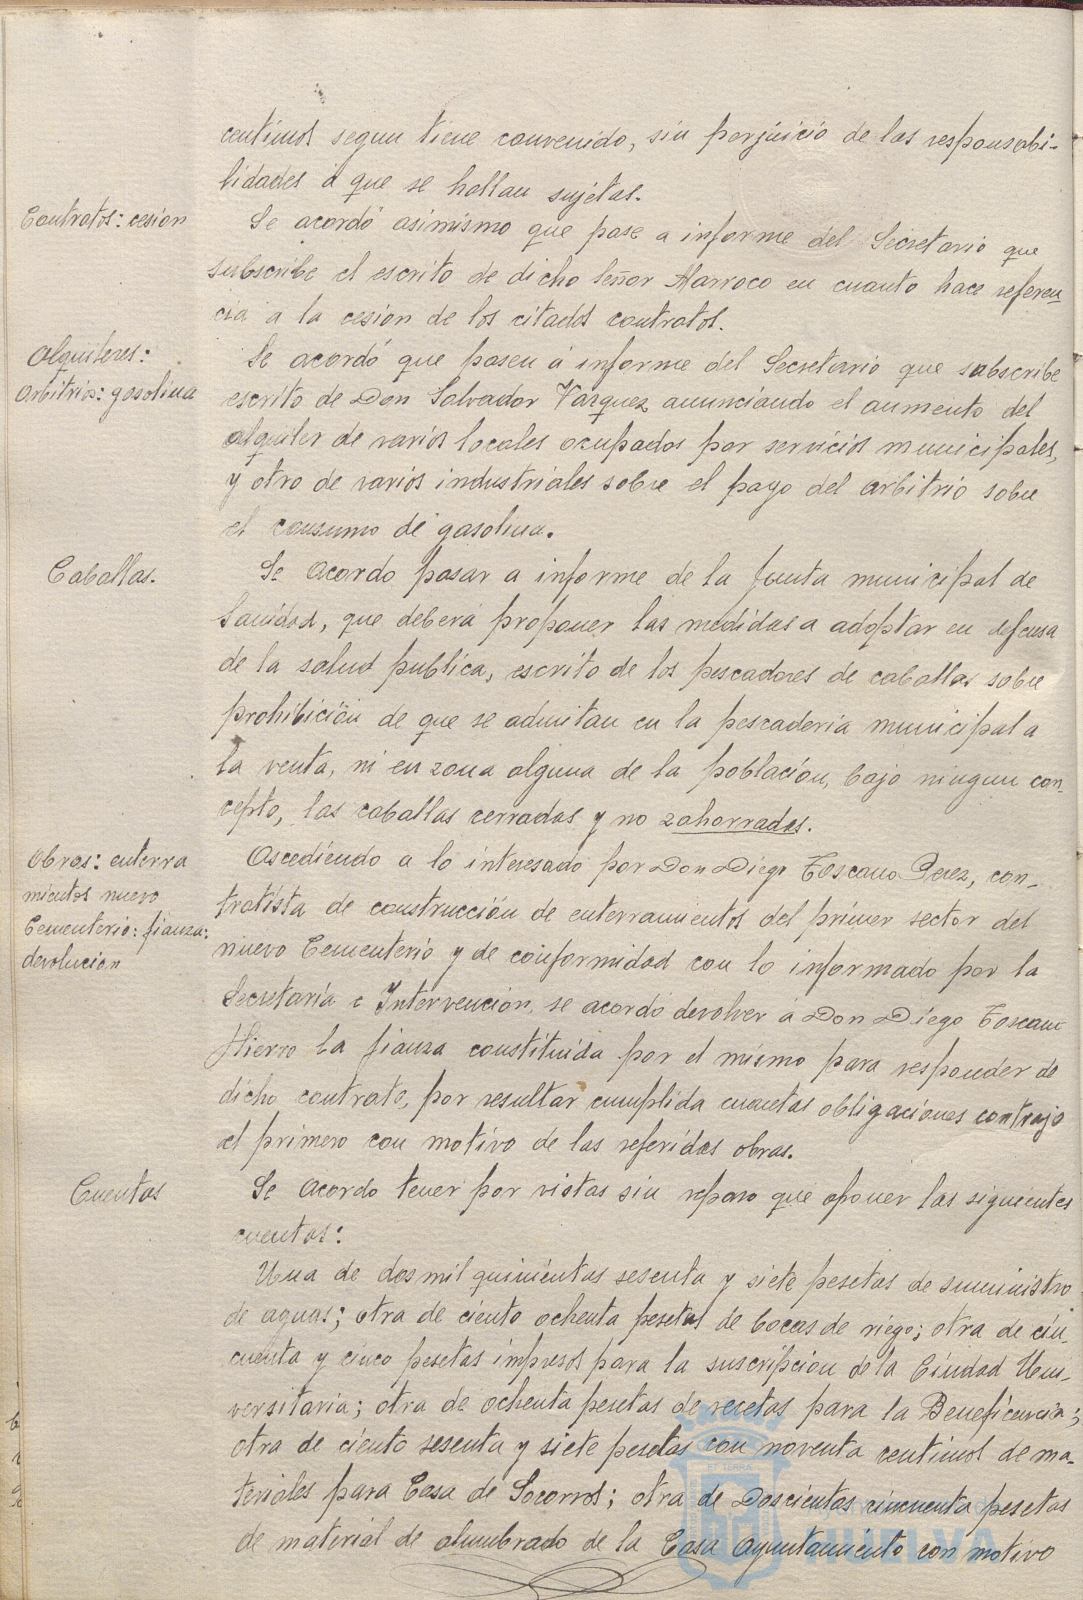 centimos segun tiene convenido, sin perjuicio de las responsabi-
lidades á que se hallan sujetas.
Contratos: cesion
Se acordó asimismo que pase a informe del Secretario que
subscribe el escrito de dicho Señor Marroco en cuanto hace referen-
cia a la cesion de los citados contratos.
Alquileres:
Arbitrios: gasolina
Se acordó que pasen á informe del Secretario que subscribe
escrito de Don Salvador Vazquez anunciando el aumento del
alquiler de varios locales ocupados por servicios municipales,
y otro de varios industriales sobre el pago del arbitrio sobre
el consumo de gasolina.
Caballas.
Se acordo pasar a informe de la Junta municipal de
Sanidad, que deberá proponer las medidas a adoptar en defensa
de la salud publica, escrito de los pescadores de caballas sobre
prohibición de que se admitan en la pescaderia municipal a
la venta, ni en zona alguna de la población, bajo ningun con-
cepto, las caballas cerradas y no zahorradas.
Obras: enterra
mientos nuevo
Cementerio: fianza:
devolucion
Accediendo a lo interesado por Don Diego Toscano Perez, con-
tratista de construcción de enterramientos del primer sector del
nuevo Cementerio y de conformidad con lo informado por la
Secretaría e Intervención, se acordó devolver á Don Diego Toscano
Hierro la fianza constituida por el mismo para responder de
dicho contrato, por resultar cumplida cuantas obligaciones contrajo
el primero con motivo de las referidas obras.
Cuentas
Se acordo tener por vistas sin reparo que oponer las siguientes
cuentas:
Una de dos mil quinientas sesenta y siete pesetas de suministro
de aguas; otra de ciento ochenta pesetas de bocas de riego; otra de cin
cuenta y cinco pesetas impresos para la suscripción de la Ciudad Uni-
versitaria; otra de ochenta pesetas de recetas para la Beneficencia;
otra de ciento sesenta y siete pesetas con noventa centimos de ma-
teriales para Casa de Socorros; otra de Doscientas cincuenta pesetas
de material de alumbrado de la Casa Ayuntamiento con motivo
HUELVA